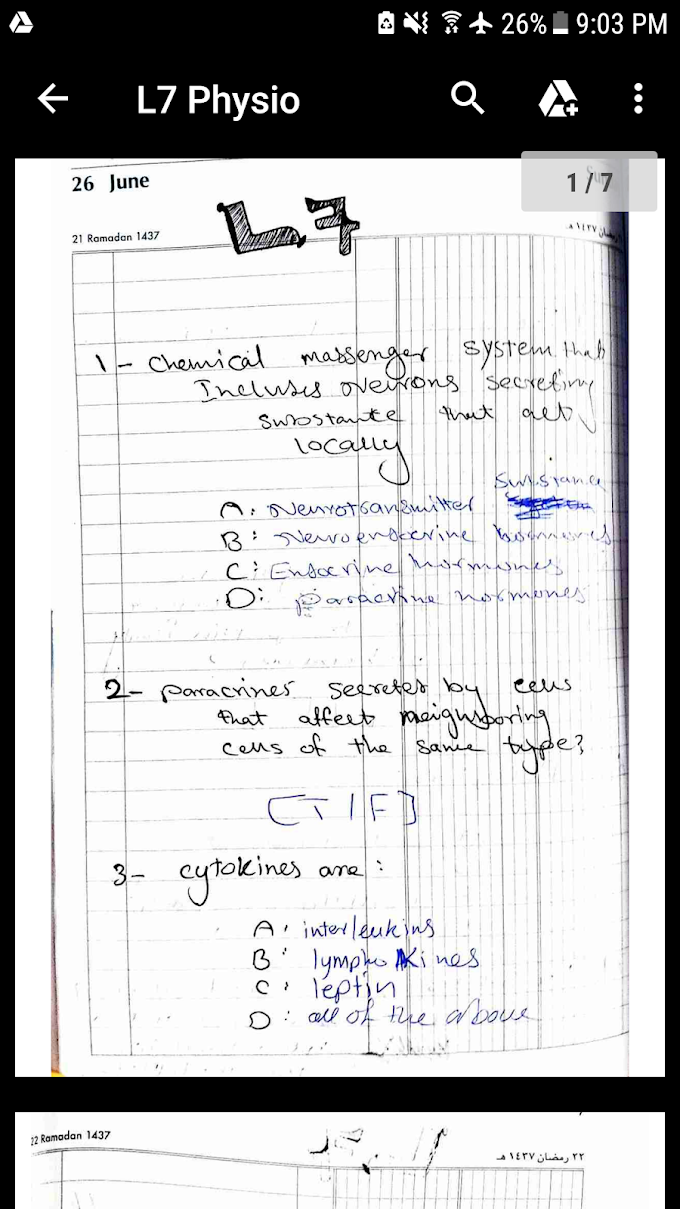 26% 9:03 PM
L7 Physio
1/7
26 June
L.7
21 Ramadan 1437
1- Chemical massenger system that
Incluses neurons secreting
substante that act
locally
substance
A: Neurotransmitter
B: Neuroendocrine hormones
C: Endocrine hormones
D: paracrine hormones
2- paracrines secreted by cells
that affect neighboring
cells of the same type?
[T/F]
3- cytokines are:
A: interleukins
B: lymphokines
C: leptin
D: all of the above
22 Ramadan 1437
٢٢ رمضان ١٤٣٧ هـ